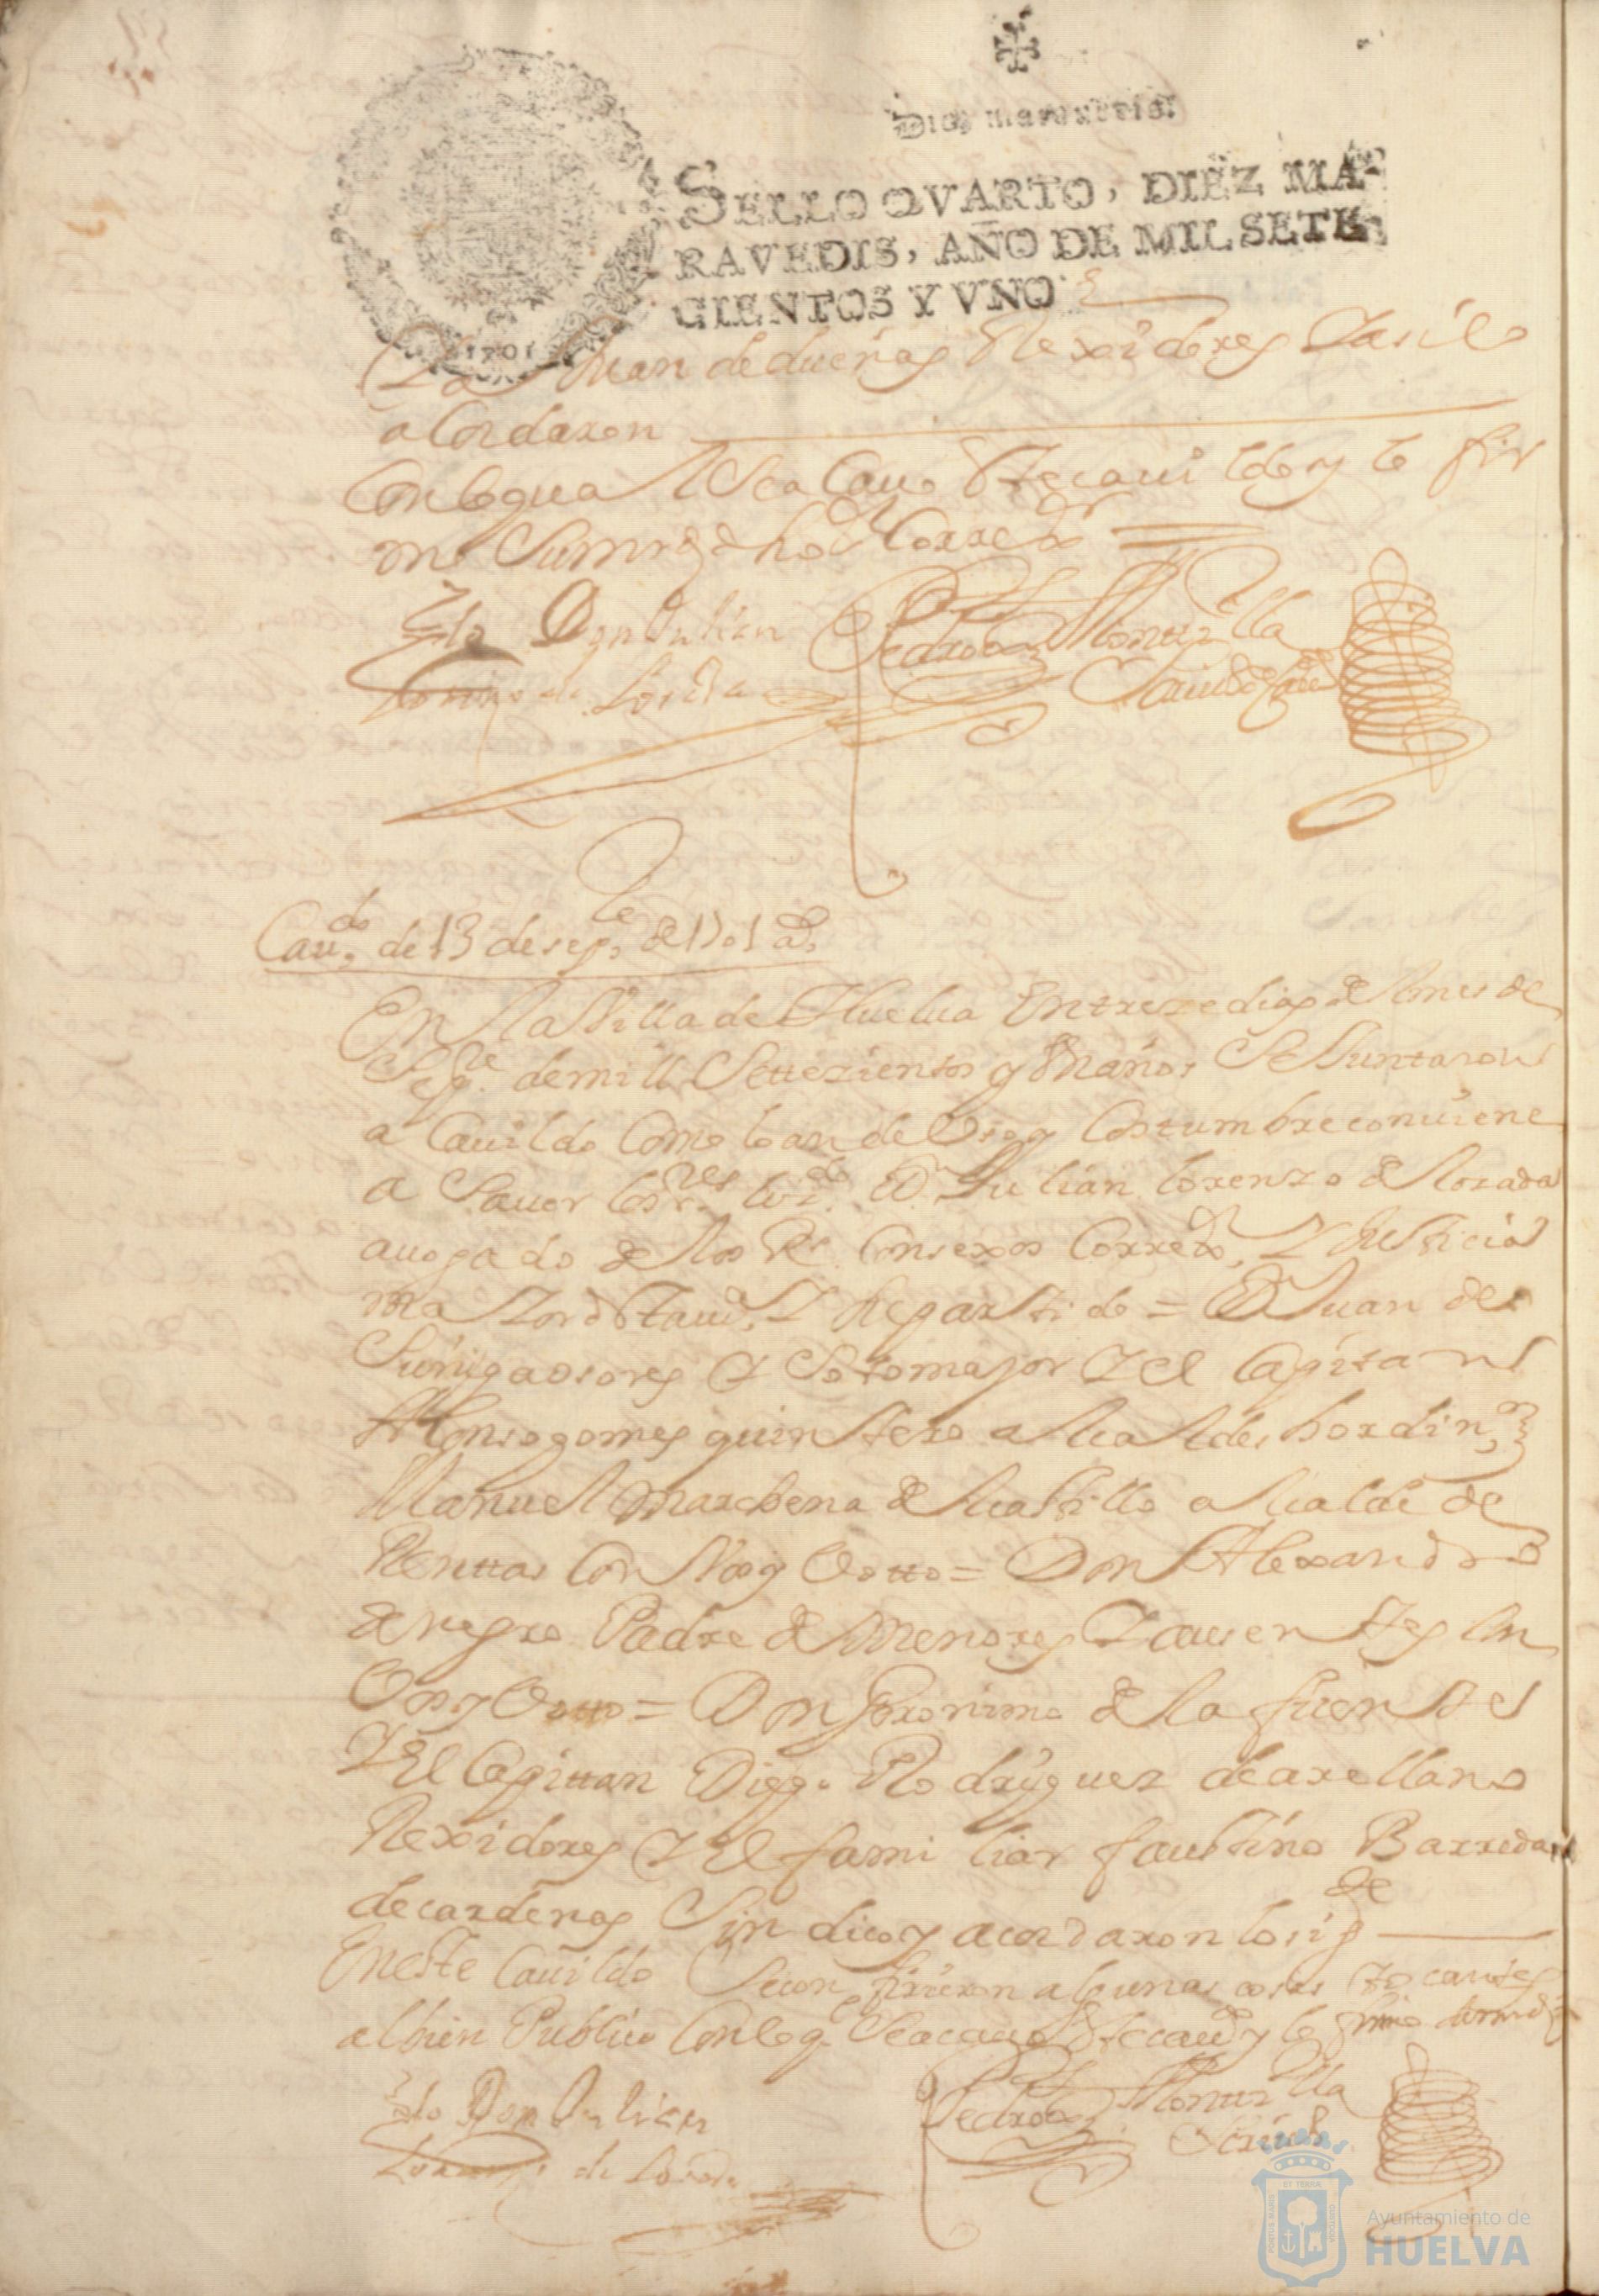 Diez maravedis.
SELLO QVARTO, DIEZ MA-
RAVEDIS, AÑO DE MIL SETE-
CIENTOS Y VNO
1701
Juan de dueñas Rexidores Y asi lo
acordaron
Con lo qual se acauo este cauildo y lo fir
mo Su mrd dho Sr Corredor
Lizdo Don Julian
Lorenzo de Losada
Pedro Montilla
Cauo de 13 de sepe de 1701 as
En la Villa de Huelua En treze dias del mes de
Sepe de mill Settezientos y Un años Se Juntaron
a Cauildo Como lo an de Uso y Costumbre conuiene
a Sauer los Sres lizdo D. Julian lorenzo de losada
auogado de los Rs Consexos Corredor Y Justicia
maior desta Va Y Su partido = D Juan de
Suñiga osores Y Sotomayor Y el Capitan
Alonso gomes quintero alcaldes hordinos
Manuel Marchena del castillo alcalde de
Renttas Con Vos y Votto = Don Alexandro
de negro Padre de Menores Y ausentes Con
Vos y Votto = Don Geronimo de la fuente
Y El Capittan Diego Rodriguez de arellano
Rexidores Y El familiar faustino Barreda
de cardenas Sindico y acordaron lo sige
En este Cauildo Se confirieron algunas cosas tocantes
al bien Publico Con lo q Se acauo este caudo y lo firmo su mrd
Lizdo Don Julian
Lorenzo de Losada
Pedro Montilla
Ayuntamiento de
HUELVA